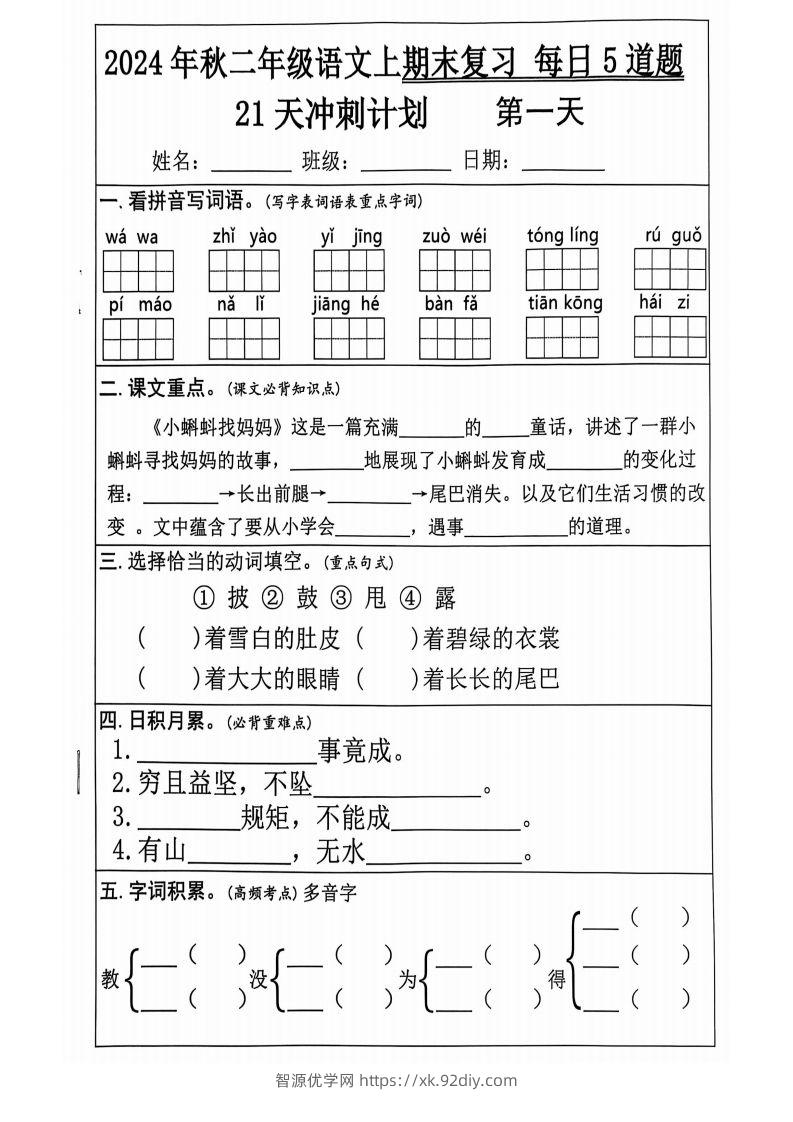 2024年秋二年级语文上期末复习 每日5道题
21天冲刺计划 第一天
姓名：______ 班级：______ 日期：______
一.看拼音写词语。(写字表词语表重点字词)
wá wa zhǐ yào yǐ jīng zuò wéi tóng líng rú guǒ
pí máo nǎ lǐ jiāng hé bàn fǎ tiān kōng hái zi
二.课文重点。(课文必背知识点)
《小蝌蚪找妈妈》这是一篇充满______的____童话，讲述了一群小
蝌蚪寻找妈妈的故事，______地展现了小蝌蚪发育成______的变化过
程：______→长出前腿→______→尾巴消失。以及它们生活习惯的改
变 。文中蕴含了要从小学会______，遇事________的道理。
三.选择恰当的动词填空。(重点句式)
① 披 ② 鼓 ③ 甩 ④ 露
( )着雪白的肚皮 ( )着碧绿的衣裳
( )着大大的眼睛 ( )着长长的尾巴
四.日积月累。(必背重难点)
1.____________事竟成。
2.穷且益坚，不坠____________。
3.________规矩，不能成________。
4.有山________，无水________。
五.字词积累。(高频考点)多音字
___( )
___( ) ___( ) ___( ) ___( )
教 没 为 得
___( ) ___( ) ___( ) ___( )
智源优学网 https://xk.92diy.com